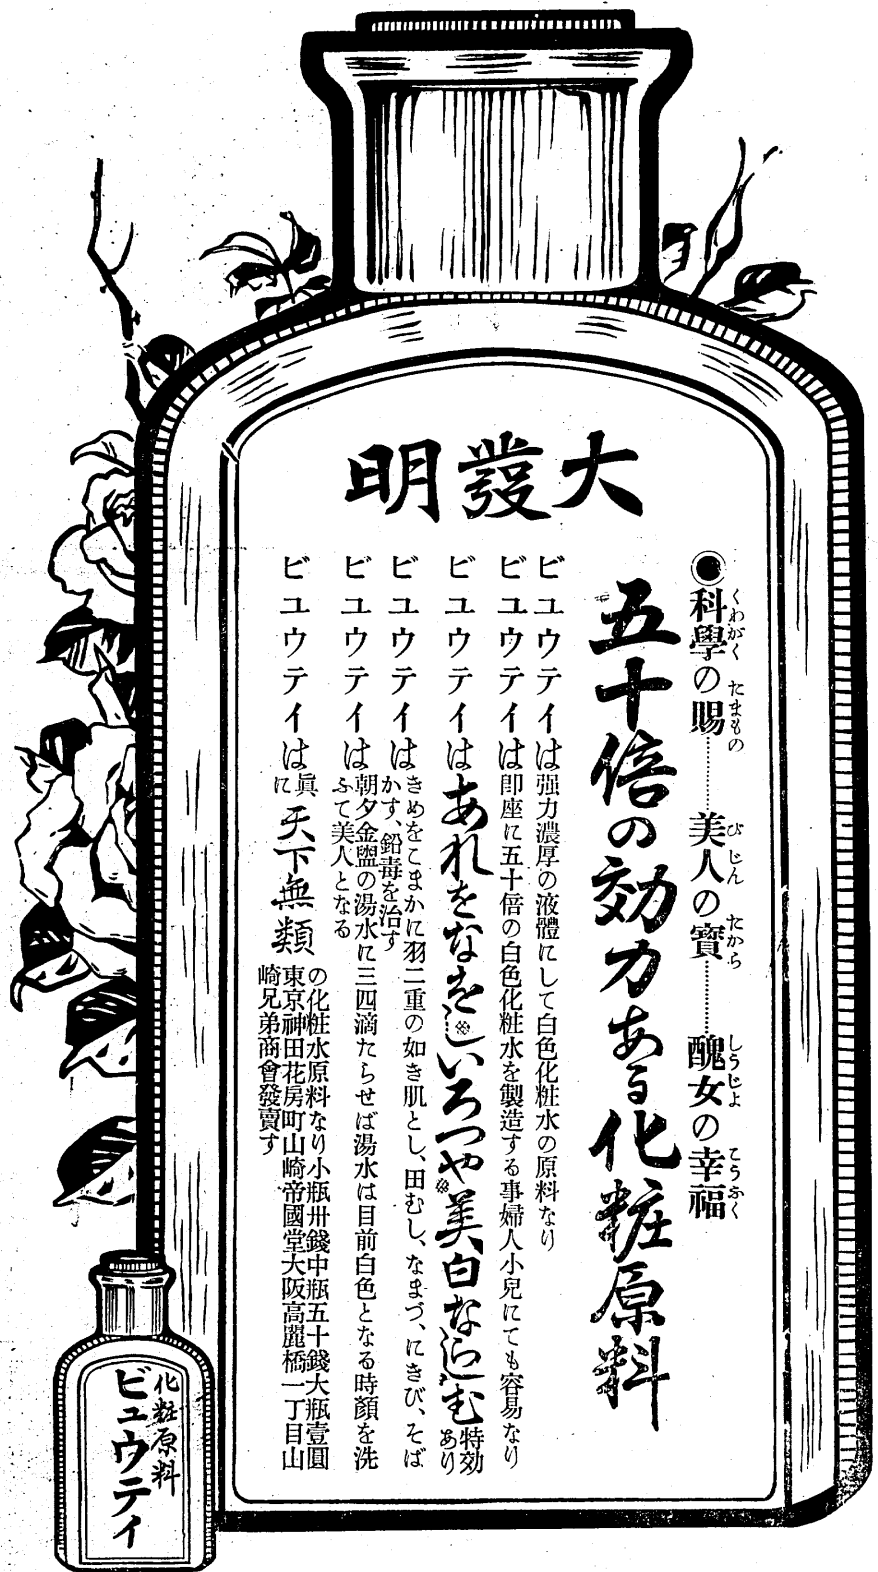 大發明
●科學の賜………美人の寶………醜女の幸福
くわがく たまもの びじん たから しうじよ こうふく
五十倍の効力ある化粧原料
ビュウテイは强力濃厚の液體にして白色化粧水の原料なり
ビュウテイは卽座に五十倍の白色化粧水を製造する事婦人小兒にても容易なり
ビュウテイはあれをなをしいろつや美白ならしむ特効あり
ビュウテイはきめをこまかに羽二重の如き肌とし、田むし、なまづ、にきび、そばかす、鉛毒を治す
ビュウテイは朝夕金盥の湯水に三四滴たらせば湯水は目前白色となる時顏を洗ふて美人となる
ビュウテイは眞に天下無類の化粧水原料なり小瓶卅錢中瓶五十錢大瓶壹圓
東京神田花房町山崎帝國堂大阪高麗橋一丁目山
崎兄弟商會發賣す
化粧原料
ビュウテイ